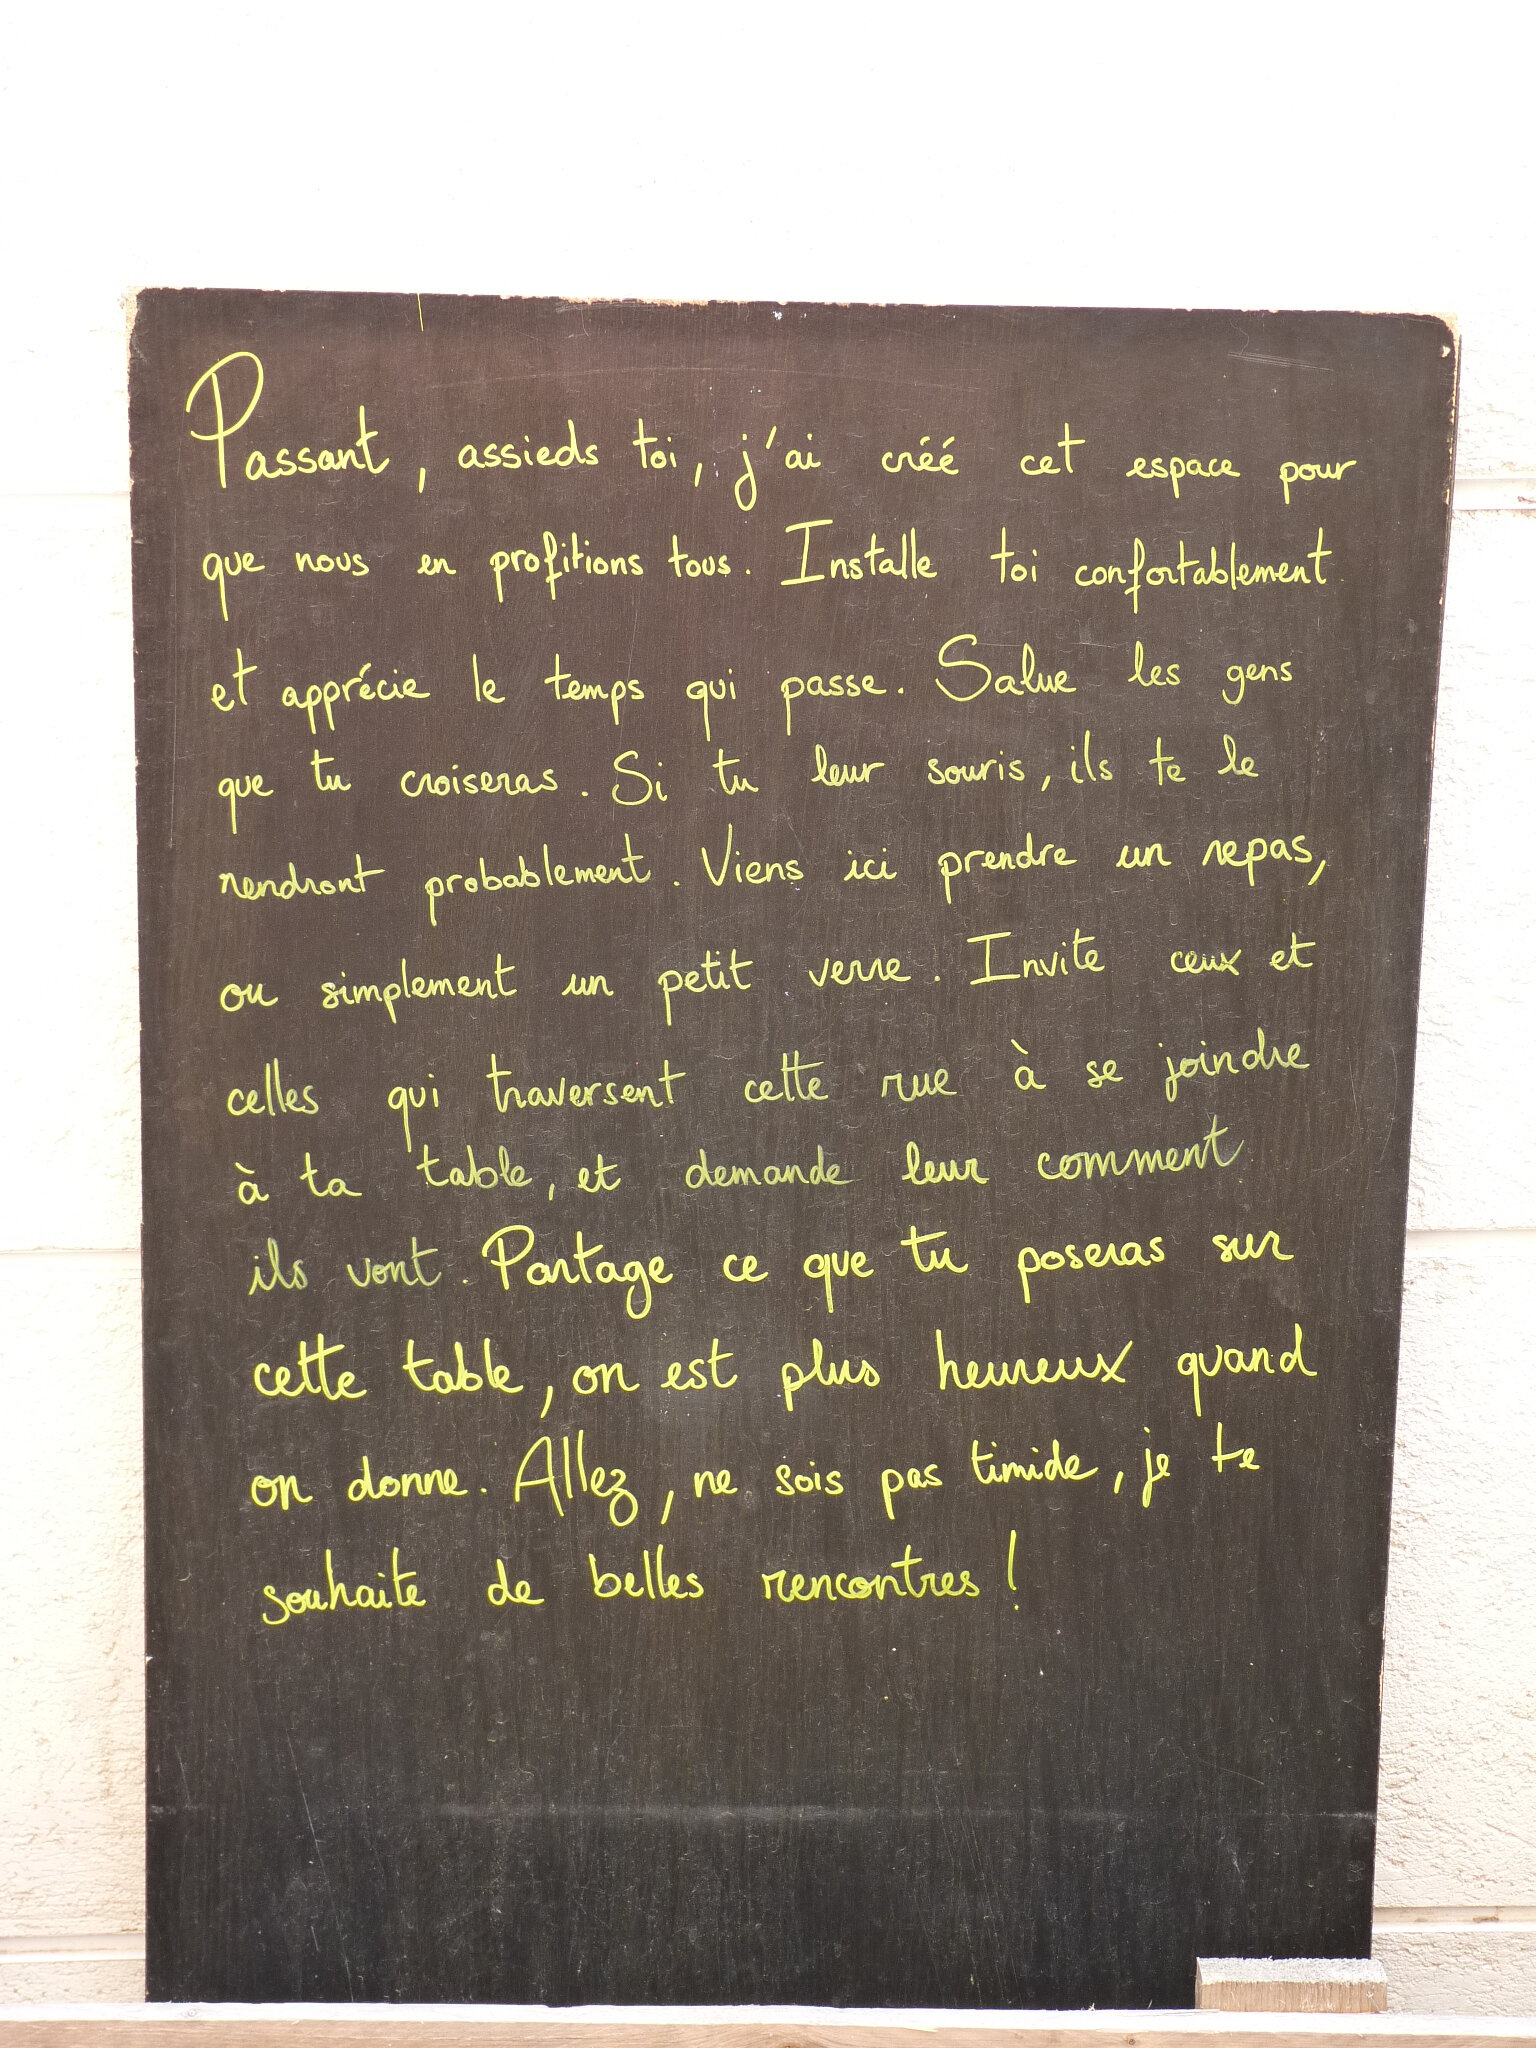 Passant, assieds toi, j'ai créé cet espace pour
que nous en profitions tous. Installe toi confortablement
et apprécie le temps qui passe. Salue les gens
que tu croiseras. Si tu leur souris, ils te le
rendront probablement. Viens ici prendre un repas,
ou simplement un petit verre. Invite ceux et
celles qui traversent cette rue à se joindre
à ta table, et demande leur comment
ils vont. Partage ce que tu poseras sur
cette table, on est plus heureux quand
on donne. Allez, ne sois pas timide, je te
souhaite de belles rencontres !